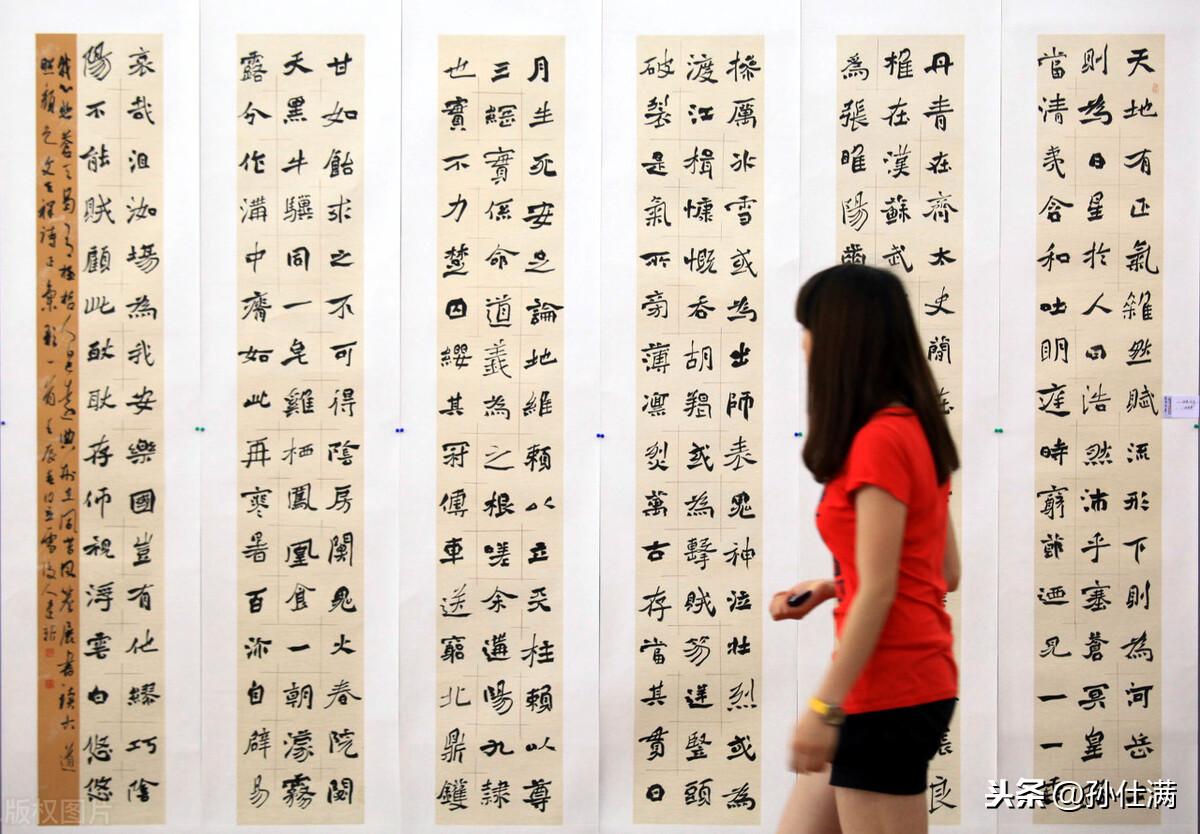 天地有正氣雜然賦流形下則為河岳
則為日星於人曰浩然沛乎塞蒼冥皇
當清夷含和吐明庭時窮節迺見一一
丹青在齊太史簡在良
椎在漢蘇武
為張睢陽齒
操厲冰雪或為出師表鬼神泣壯烈或為
渡江楫慷慨吞胡羯或為擊賊笏逆豎頭
破裂是氣所旁薄凛烈萬古存當其貫日
月生死安足論地維賴以立天柱賴以尊
三綱實係命道義為之根嗟余遘陽九隸
也實不力楚囚纓其冠傳車送窮北鼎鑊
甘如飴求之不可得陰房闃鬼火春院閟
天黑牛驥同一皂雞栖鳳凰食一朝濛霧
露分作溝中瘠如此再寒暑百沴自辟易
哀哉沮洳場為我安樂國豈有他繆巧陰
陽不能賊顧此耿耿存仰視浮雲白悠悠
我心悲蒼天曷有極哲人日已遠典刑在夙昔風簷展書讀古道
照顏色文天祥詩正氣歌一首
版权图片
头条 @孙仕满